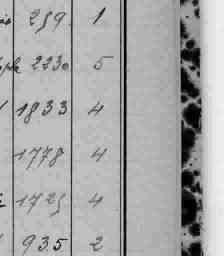 259 1
2230 5
1833 4
1778 4
1725 4
935 2